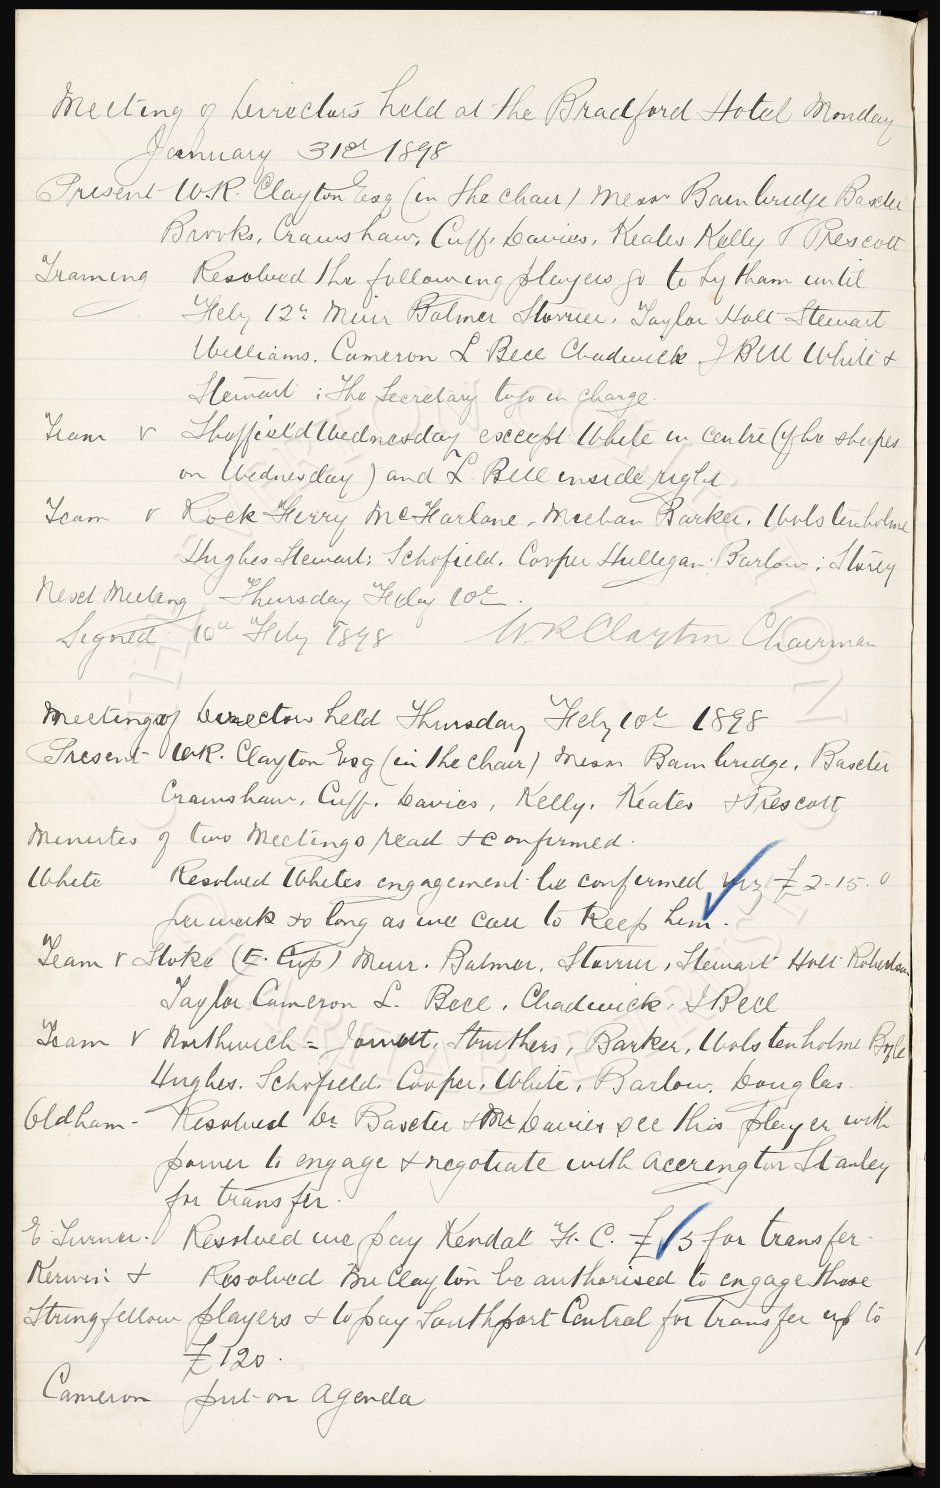 Meeting of Directors held at the Bradford Hotel Monday
January 31st 1898
Present W.R. Clayton Esq (in the chair) Messrs Bainbridge Baxter
Brooks, Crawshaw, Cuff, Davies, Keates Kelly & Prescott
Training Resolved the following players go to Lytham until
Feby 12th Muir Balmer Storrier, Taylor Holt Stewart
Williams. Cameron L Bell Chadwick J Bell White &
Stewart : The Secretary to go in charge.
Team v Sheffield Wednesday except White in centre (if he shapes
on Wednesday) and L Bell inside right
Team v Rock Ferry McFarlane, Meehan Barker, Wolstenholme
Hughes Stewart: Schofield. Cooper Hulligan: Barlow: Storey
Next Meeting Thursday Feby 10th.
Signed 10th Feby 1898 WR Clayton Chairman
Meeting of Directors held Thursday Feby 10th 1898
Present W.R. Clayton Esq (in the chair) Messrs Bainbridge, Baxter
Crawshaw, Cuff, Davies, Kelly, Keates & Prescott
Minutes of two Meetings read & confirmed.
White Resolved Whites engagement be confirmed viz £2-15-0
per week so long as we care to keep him.
Team v Stoke (E. Cup) Muir. Balmer, Storrier, Stewart Holt Robertson
Taylor Cameron L. Bell, Chadwick, J Bell
Team v Northwich = Struthers, Barker, Wolstenholme Boyle
Hughes. Schofield. Cooper, White, Barlow, Douglas.
Oldham - Resolved Dr Baxter & Mr Davies see this player with
power to engage & negotiate with Accrington Stanley
for transfer.
E Turner. Resolved we pay Kendal F. C. £5 for transfer.
Kerwin & Resolved Mr Clayton be authorised to engage those
Stringfellow players & to pay Southport Central for transfer up to
£120.
Cameron put on Agenda